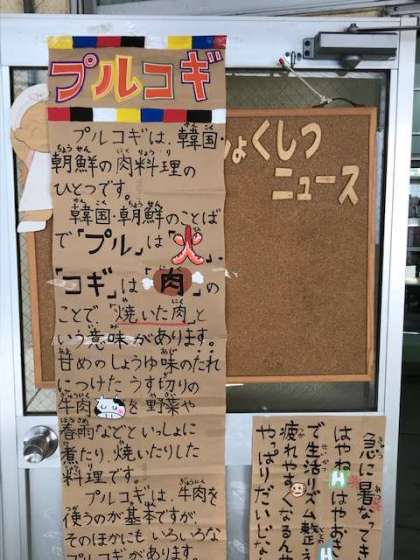 プルコギ
プルコギは、韓国・
朝鮮の肉料理の
ひとつです。
韓国・朝鮮のことば
で「プル」は「火」、
「コギ」は「肉」の
ことで、「焼いた肉」と
いう意味があります。
甘めのしょうゆ味のたれ
につけたうす切りの
牛肉を野菜や
春雨などといっしょに
煮たり、焼いたりした
料理です。
プルコギは、牛肉を
使うのが基本ですが、
そのほかにもいろいろな
プルコギがあります。
ょくしつ
ニュース
急に暑なってき
はやね はやお
で生活リズム整え
疲れやすくなる
やっぱりだいじな